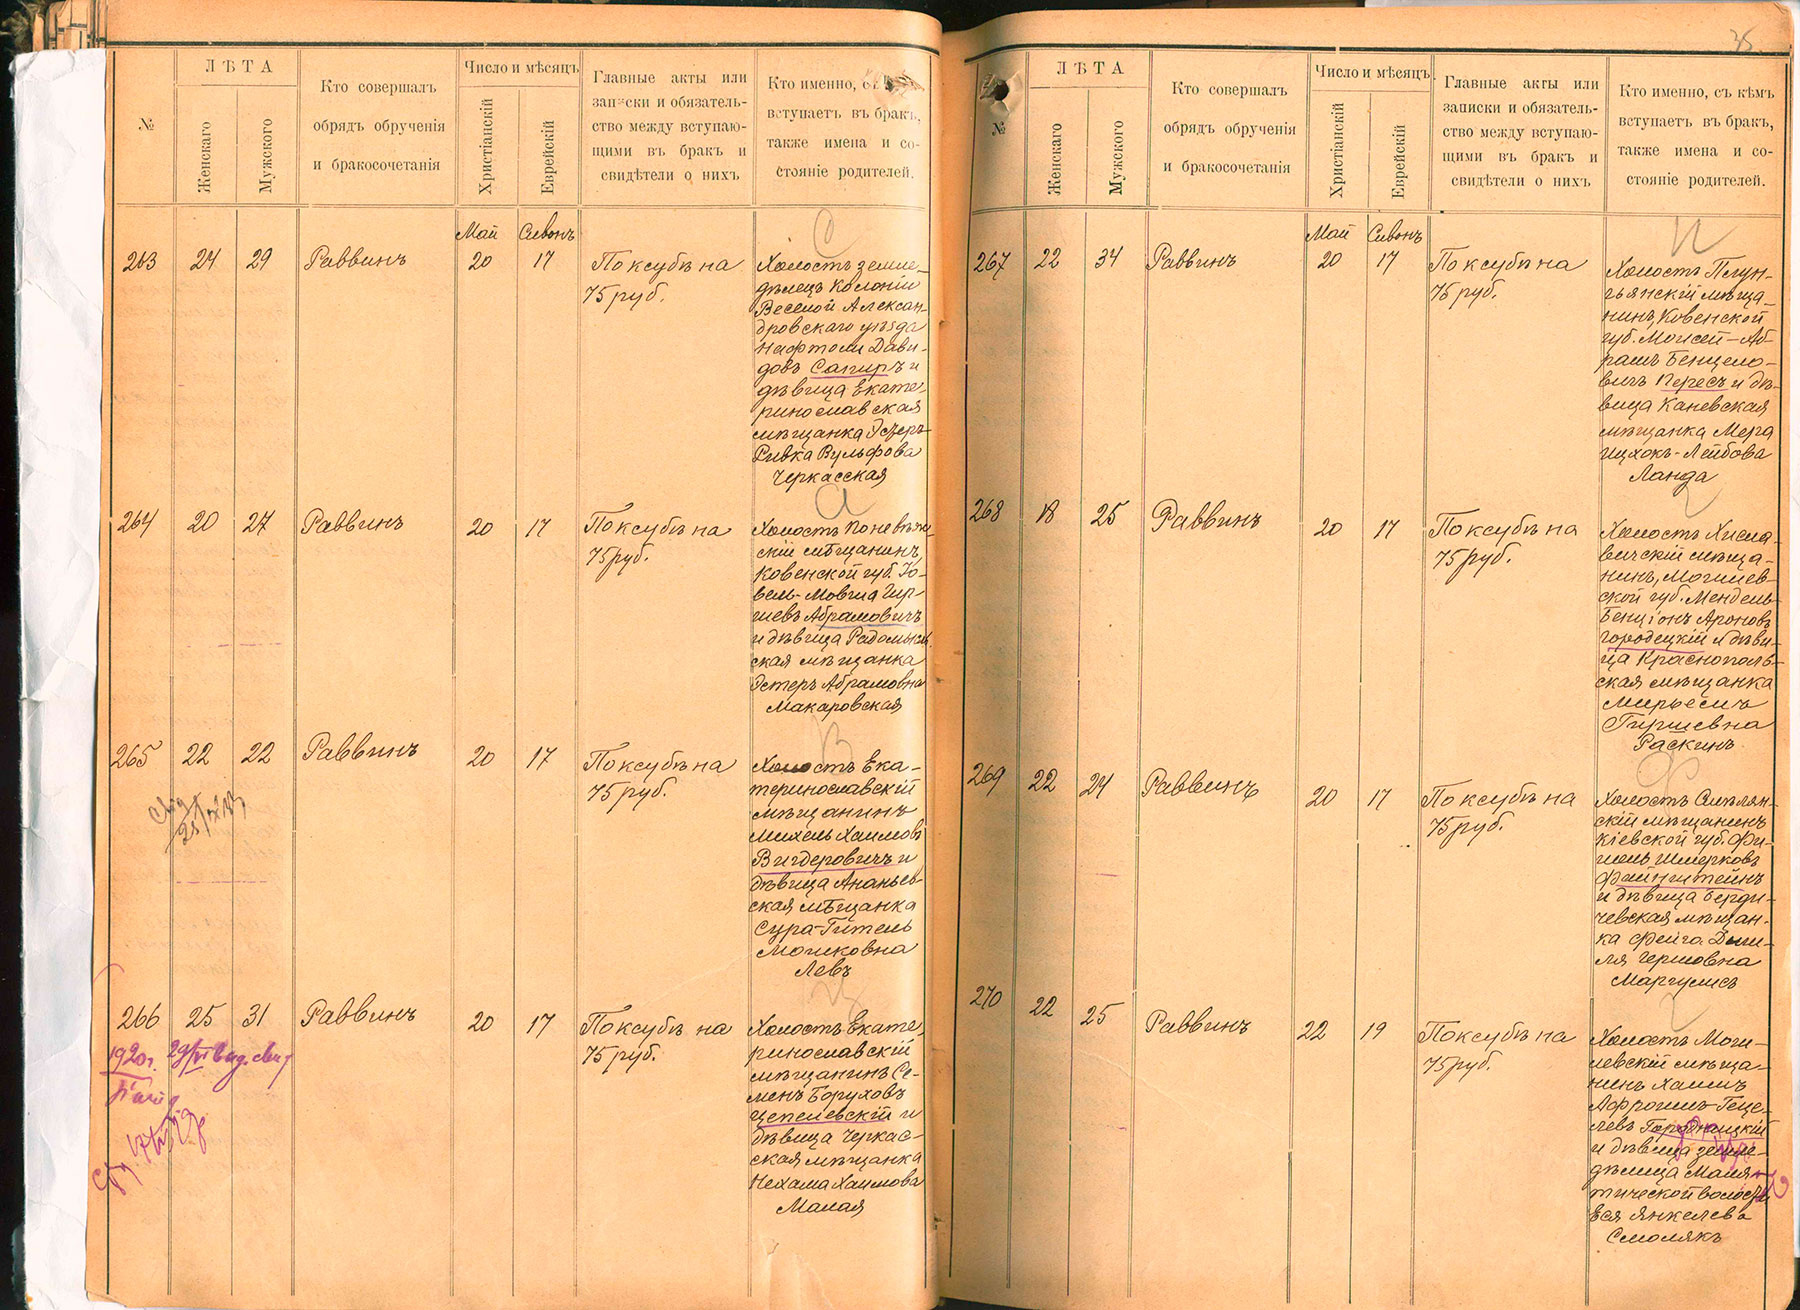 №
ЛѢТА
Женскаго
Мужского
Кто совершалъ
обрядъ обрученія
и бракосочетанія
Число и мѣсяцъ
Христіанскій
Еврейскій
Главные акты или
записки и обязатель-
ство между вступаю-
щими въ бракъ и
свидѣтели о нихъ
Кто именно, съ
вступаетъ въ бракъ,
также имена и со-
стояніе родителей.
Май Сивонъ
263 24 29 Раввинъ 20 17
По ксубѣ на
75 руб.
Холостъ земле-
дѣлецъ колоніи
Веселой Алексан-
дровскаго уѣзда
Нафтоли Дави-
довъ Сапиръ и
дѣвица Екате
ринославская
мѣщанка Эстеръ-
Ривка Вульфова
Черкасская
264 20 27 Раввинъ 20 17
По ксубѣ на
75 руб.
Холостъ Поневѣж
скій мѣщанинъ
Ковенской губ. Іо-
вель-Мовша Гир-
шевъ Абрамовичъ
и дѣвица Радомысль
ская мѣщанка
Эстеръ Абрамовна
Макаровская
265 22 22 Раввинъ 20 17
По ксубѣ на
75 руб.
Холостъ Ека-
теринославскій
мѣщанинъ
Михель Хаимовъ
Вигдеровичъ и
дѣвица Ананьев-
ская мѣщанка
Сура-Гитель
Мошковна
Левъ
266 25 31 Раввинъ 20 17
По ксубѣ на
75 руб.
1920 г. 29/VI выд. свид
Холостъ Екате
ринославскій
мѣщанинъ Се-
менъ Боруховъ
Цепелевскій и
дѣвица Черкас-
ская мѣщанка
Нехама Хаимова
Малая
35
№
ЛѢТА
Женскаго
Мужского
Кто совершалъ
обрядъ обрученія
и бракосочетанія
Число и мѣсяцъ
Христіанскій
Еврейскій
Главные акты или
записки и обязатель-
ство между вступаю-
щими въ бракъ и
свидѣтели о нихъ
Кто именно, съ кѣмъ
вступаетъ въ бракъ,
также имена и со-
стояніе родителей.
Май Сивонъ
267 22 34 Раввинъ 20 17
По ксубѣ на
75 руб.
Холостъ Плун-
гьянскій мѣща-
нинъ, Ковенской
губ. Моисей-Аб
рамъ Бенцело-
вичъ Пересъ и дѣ-
вица Каневская
мѣщанка Мера
Ицхокъ-Лейбова
Ланда
268 18 25 Раввинъ 20 17
По ксубѣ на
75 руб.
Холостъ Хисла-
вичскій мѣща-
нинъ, Могилев-
ской губ. Мендель-
Бенціонъ Ароновъ
Городецкій и дѣви-
ца Краснополь-
ская мѣщанка
Мирьесиа
Гиршевна
Раскинъ
269 22 24 Раввинъ 20 17
По ксубѣ на
75 руб.
Холостъ Смѣлян-
скій мѣщанинъ
Кіевской губ. Фи-
шель Шмерковъ
Файнштейнъ
и дѣвица Берди-
чевская мѣщан-
ка Фейга-
Гершовна
Маргулисъ
270 22 25 Раввинъ 22 19
По ксубѣ на
75 руб.
Холостъ Моги-
левскій мѣща-
нинъ Хаимъ
Афроимъ-Геце-
левъ
и дѣвица земле-
дѣлица
волости
Еся Янкелева
Смолякъ